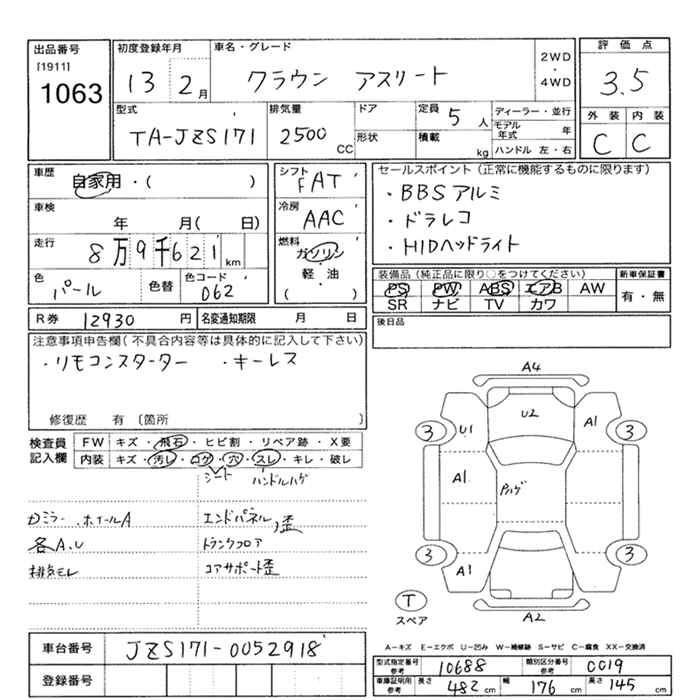 出品番号 初度登録年月 車名・グレード 2WD 評価点
[1911] ・
1063 13 2月 クラウン アスリート 4WD 3.5
型式 排気量 ドア 定員 5人 ディーラー・並行 外装 内装
TA-JZS171 2500CC 形状 積載 kg モデル年式 年 C C
ハンドル 左・右
車歴 自家用・( ) シフト FAT セールスポイント(正常に機能するものに限ります)
車検 年 月( 日) 冷房 AAC ・BBSアルミ
・ドラレコ
走行 8万9千621km 燃料 ガソリン ・HIDヘッドライト
軽・油
( )
色 パール 色替 色コード 062 装備品(純正品に限り○をつけてください) 新車保証書
PS PW ABS エアB AW 有・無
SR ナビ TV カワ
R券 12930円 名変通知期限 月 日 後日品
注意事項申告欄(不具合内容等は具体的に記入して下さい)
・リモコンスターター ・キーレス
修復歴 有 〔箇所 〕
検査員記入欄 FW キズ・飛石・ヒビ割・リペア跡・X要
内装 キズ・汚レ・コゲ・穴・スレ・キレ・破レ
シート ハンドルハゲ
ミラー ホイールA エンドパネル歪
各A.U トランクフロア
排気モレ コアサポート歪
A4
U2
U1 A1
3 3
A1 Pハゲ
3 3
A1
T
スペア A2
A-キズ E-エクボ U-凹み W-補修跡 S-サビ C-腐食 XX-交換済
車台番号 JZS171-0052918
登録番号
型式指定番号参考 10688 類別区分番号参考 0019
車庫証明用参考 長さ 482cm 幅 176cm 高さ 145cm